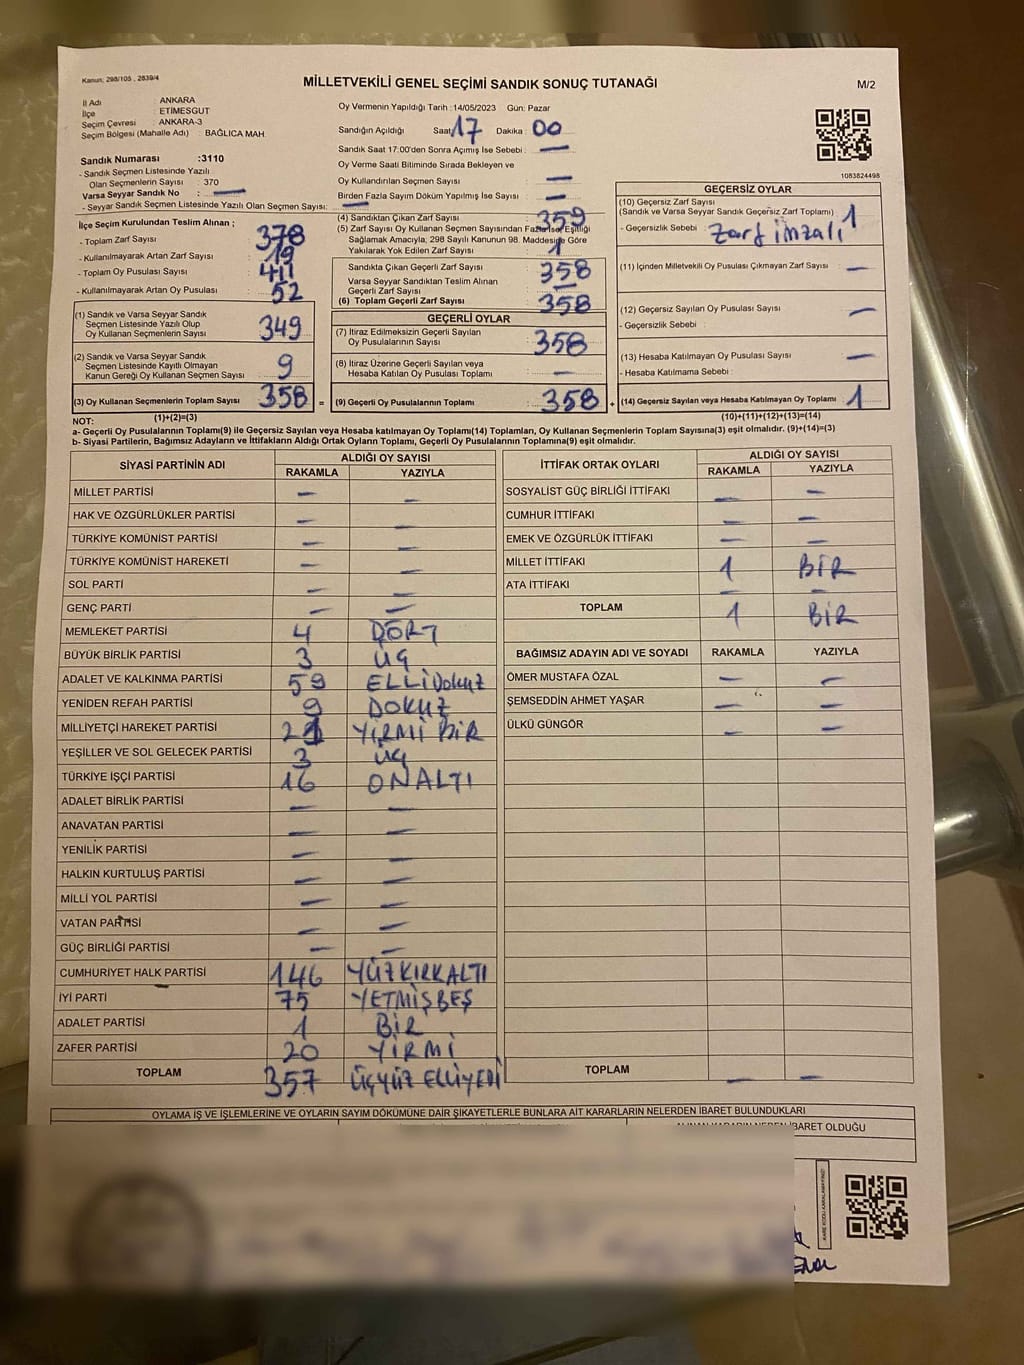 Kanun: 298/105 , 2839/4
MİLLETVEKİLİ GENEL SEÇİMİ SANDIK SONUÇ TUTANAĞI
M/2
İl Adı : ANKARA
İlçe : ETİMESGUT
Seçim Çevresi : ANKARA-3
Seçim Bölgesi (Mahalle Adı) : BAĞLICA MAH.
Sandık Numarası :3110
- Sandık Seçmen Listesinde Yazılı
Olan Seçmenlerin Sayısı : 370
Varsa Seyyar Sandık No : —
- Seyyar Sandık Seçmen Listesinde Yazılı Olan Seçmen Sayısı: —
Oy Vermenin Yapıldığı Tarih : 14/05/2023 Gün: Pazar
Sandığın Açıldığı Saat 17 Dakika : 00
Sandık Saat 17:00'den Sonra Açımış İse Sebebi : —
Oy Verme Saati Bitiminde Sırada Bekleyen ve
Oy Kullandırılan Seçmen Sayısı —
Birden Fazla Sayım Döküm Yapılmış İse Sayısı —
1083824498
İlçe Seçim Kurulundan Teslim Alınan ;
- Toplam Zarf Sayısı 378
- Kullanılmayarak Artan Zarf Sayısı 19
- Toplam Oy Pusulası Sayısı 411
- Kullanılmayarak Artan Oy Pusulası 52
(1) Sandık ve Varsa Seyyar Sandık
Seçmen Listesinde Yazılı Olup
Oy Kullanan Seçmenlerin Sayısı 349
(2) Sandık ve Varsa Seyyar Sandık
Seçmen Listesinde Kayıtlı Olmayan
Kanun Gereği Oy Kullanan Seçmen Sayısı 9
(3) Oy Kullanan Seçmenlerin Toplam Sayısı 358 =
(1)+(2)=(3)
(4) Sandıktan Çıkan Zarf Sayısı 359
(5) Zarf Sayısı Oy Kullanan Seçmen Sayısından Fazla İse, Eşitliği
Sağlamak Amacıyla, 298 Sayılı Kanunun 98. Maddesine Göre
Yakılarak Yok Edilen Zarf Sayısı 1
Sandıkta Çıkan Geçerli Zarf Sayısı 358
Varsa Seyyar Sandıktan Teslim Alınan
Geçerli Zarf Sayısı —
(6) Toplam Geçerli Zarf Sayısı 358
GEÇERLİ OYLAR
(7) İtiraz Edilmeksizin Geçerli Sayılan
Oy Pusulalarının Sayısı 358
(8) İtiraz Üzerine Geçerli Sayılan veya
Hesaba Katılan Oy Pusulası Toplamı —
(9) Geçerli Oy Pusulalarının Toplamı 358 +
GEÇERSİZ OYLAR
(10) Geçersiz Zarf Sayısı
(Sandık ve Varsa Seyyar Sandık Geçersiz Zarf Toplamı) 1
- Geçersizlik Sebebi : Zarf imzalı
(11) İçinden Milletvekili Oy Pusulası Çıkmayan Zarf Sayısı —
(12) Geçersiz Sayılan Oy Pusulası Sayısı —
- Geçersizlik Sebebi :
(13) Hesaba Katılmayan Oy Pusulası Sayısı —
- Hesaba Katılmama Sebebi :
(14) Geçersiz Sayılan veya Hesaba Katılmayan Oy Toplamı 1
(10)+(11)+(12)+(13)=(14)
NOT:
a- Geçerli Oy Pusulalarının Toplamı(9) ile Geçersiz Sayılan veya Hesaba katılmayan Oy Toplamı(14) Toplamları, Oy Kullanan Seçmenlerin Toplam Sayısına(3) eşit olmalıdır. (9)+(14)=(3)
b- Siyasi Partilerin, Bağımsız Adayların ve İttifakların Aldığı Ortak Oyların Toplamı, Geçerli Oy Pusulalarının Toplamına(9) eşit olmalıdır.
SİYASİ PARTİNİN ADI ALDIĞI OY SAYISI
RAKAMLA YAZIYLA
MİLLET PARTİSİ — —
HAK VE ÖZGÜRLÜKLER PARTİSİ — —
TÜRKİYE KOMÜNİST PARTİSİ — —
TÜRKİYE KOMÜNİST HAREKETİ — —
SOL PARTİ — —
GENÇ PARTİ — —
MEMLEKET PARTİSİ 4 DÖRT
BÜYÜK BİRLİK PARTİSİ 3 ÜÇ
ADALET VE KALKINMA PARTİSİ 59 ELLİDOKUZ
YENİDEN REFAH PARTİSİ 9 DOKUZ
MİLLİYETÇİ HAREKET PARTİSİ 21 YİRMİ BİR
YEŞİLLER VE SOL GELECEK PARTİSİ 3 ÜÇ
TÜRKİYE İŞÇİ PARTİSİ 16 ONALTI
ADALET BİRLİK PARTİSİ — —
ANAVATAN PARTİSİ — —
YENİLİK PARTİSİ — —
HALKIN KURTULUŞ PARTİSİ — —
MİLLİ YOL PARTİSİ — —
VATAN PARTİSİ — —
GÜÇ BİRLİĞİ PARTİSİ — —
CUMHURİYET HALK PARTİSİ 146 YÜZKIRKALTI
İYİ PARTİ 75 YETMİŞBEŞ
ADALET PARTİSİ 1 BİR
ZAFER PARTİSİ 20 YİRMİ
TOPLAM 357 ÜÇYÜZ ELLİYEDİ
İTTİFAK ORTAK OYLARI ALDIĞI OY SAYISI
RAKAMLA YAZIYLA
SOSYALİST GÜÇ BİRLİĞİ İTTİFAKI — —
CUMHUR İTTİFAKI — —
EMEK VE ÖZGÜRLÜK İTTİFAKI — —
MİLLET İTTİFAKI 1 BİR
ATA İTTİFAKI — —
TOPLAM 1 BİR
BAĞIMSIZ ADAYIN ADI VE SOYADI RAKAMLA YAZIYLA
ÖMER MUSTAFA ÖZAL — —
ŞEMSEDDİN AHMET YAŞAR — —
ÜLKÜ GÜNGÖR — —
TOPLAM — —
OYLAMA İŞ VE İŞLEMLERİNE VE OYLARIN SAYIM DÖKÜMÜNE DAİR ŞİKAYETLERLE BUNLARA AİT KARARLARIN NELERDEN İBARET BULUNDUKLARI
ALINAN KARARIN NEDEN İBARET OLDUĞU
KARE KODU KARALAMAYINIZ!